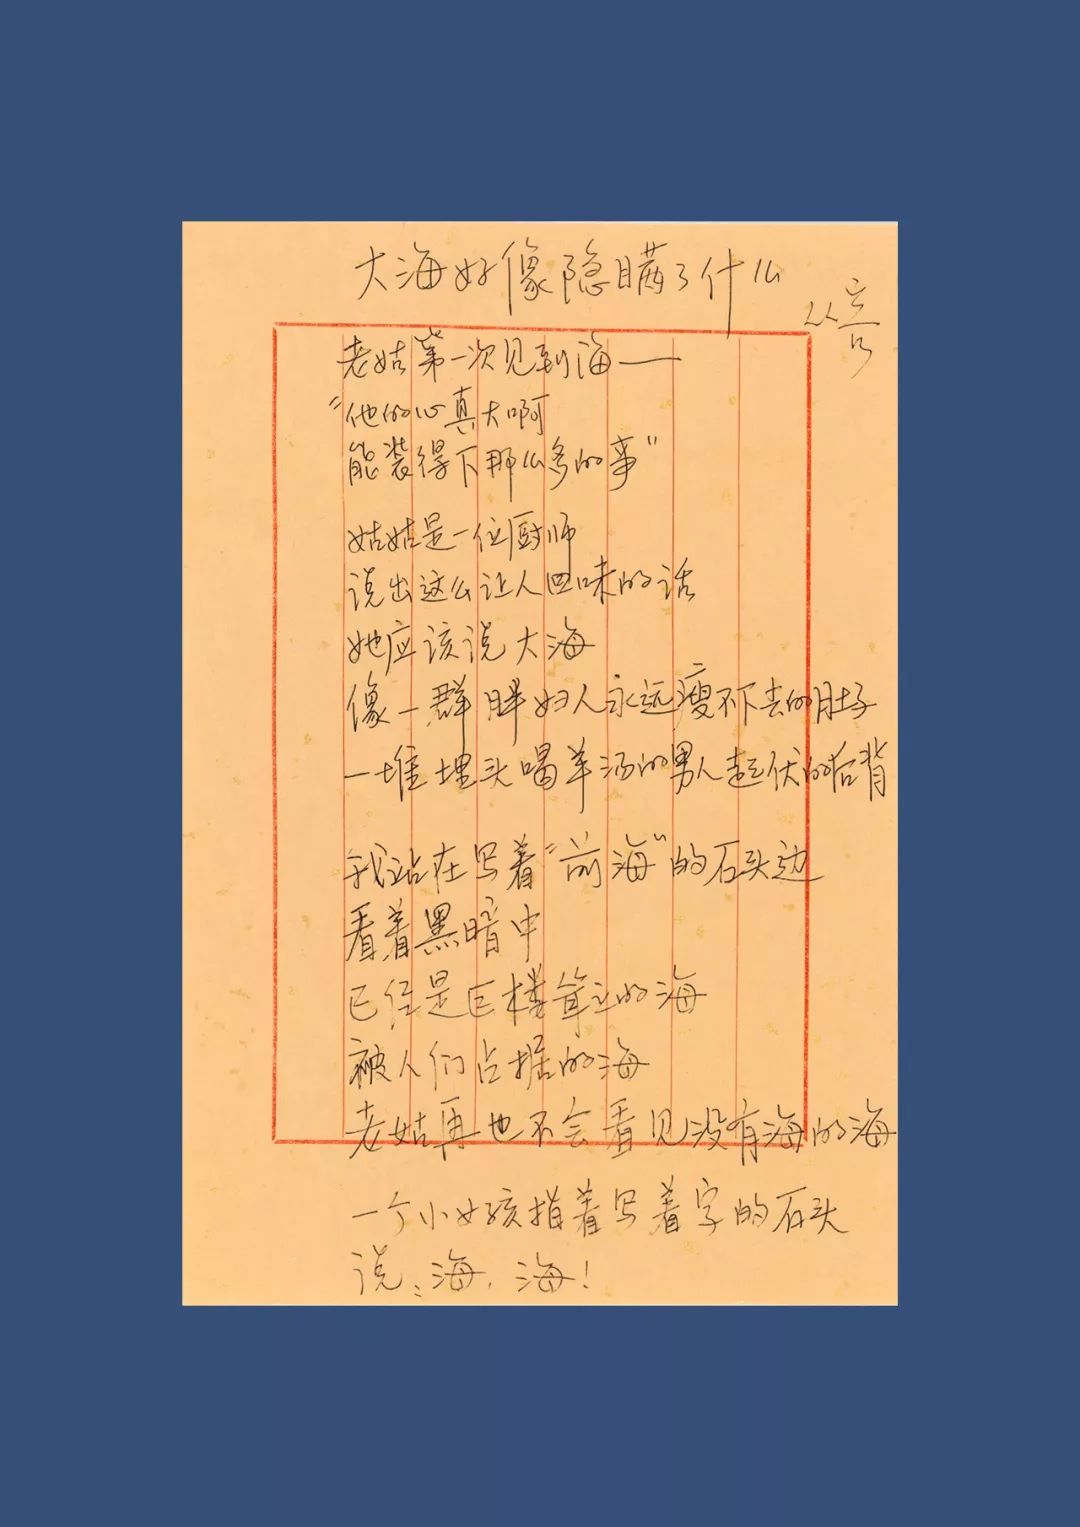 大海好像隐瞒了什么
从容
老姑第一次见到海——
“他的心真大啊
能装得下那么多的事”
姑姑是一位厨师
说出这么让人回味的话
她应该说大海
像一群胖妇人永远瘦不下去的肚子
一堆埋头喝羊汤的男人起伏的后背
我站在写着“前海”的石头边
看着黑暗中
已经是巨楼耸立的海
被人们占据的海
老姑再也不会看见没有海的海
一个小女孩指着写着字的石头
说：海，海！